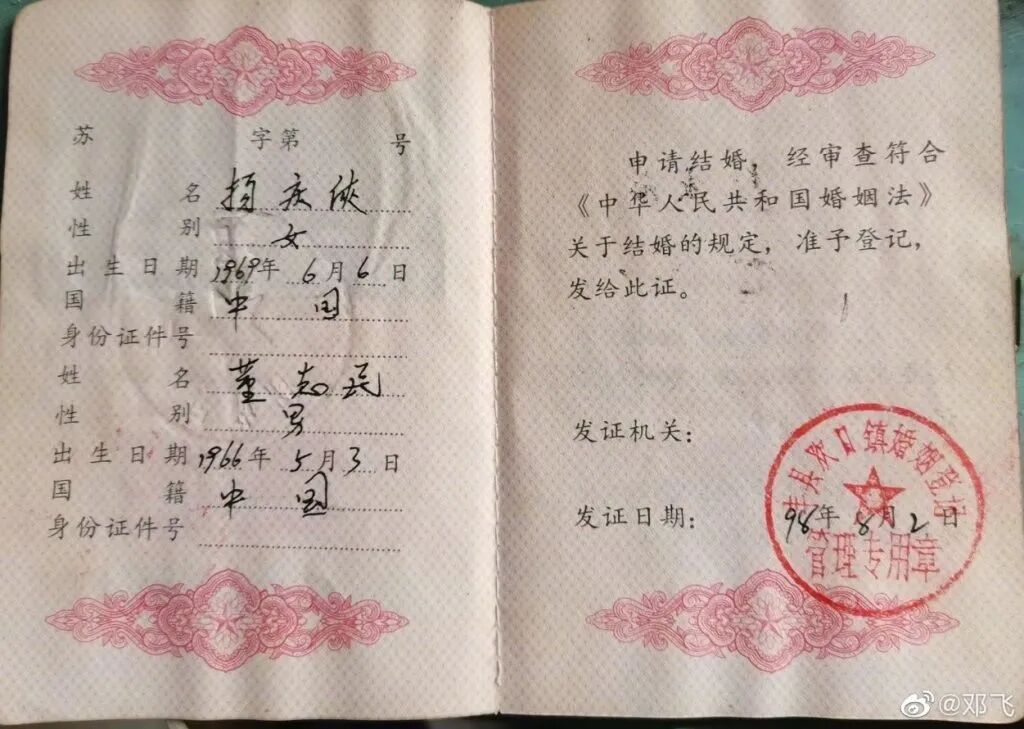 苏 字第 号
姓 名 杨庆侠
性 别 女
出生日期 1969年 6月6日
国 籍 中国
身份证件号
姓 名 董志民
性 别 男
出生日期 1966年 5月3日
国 籍 中国
身份证件号
申请结婚，经审查符合
《中华人民共和国婚姻法》
关于结婚的规定，准予登记，
发给此证。
发证机关：
发证日期： 98年 8月2日
丰县欢口镇婚姻登记
管理专用章
@邓飞